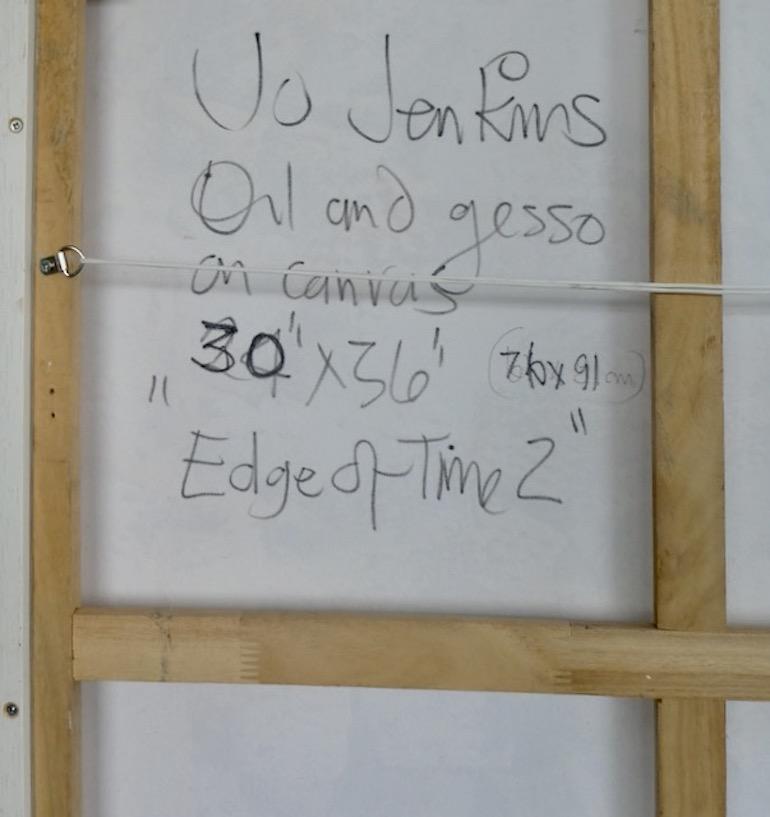 Jo Jenkins
Oil and gesso
on canvas
30" x 36" (76 x 91 cm)
"Edge of Time 2"